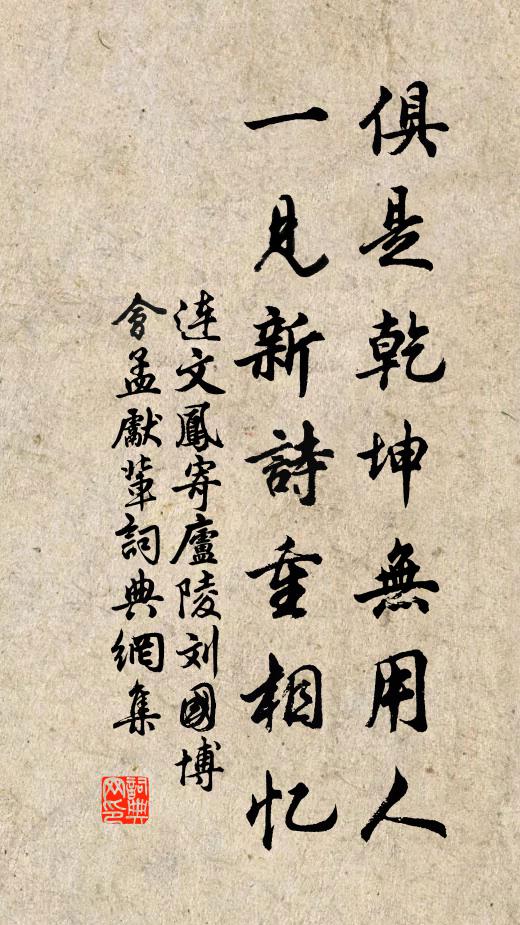 俱是乾坤無用人
一見新詩重相忆
连文鳳寄廬陵刘國博
會孟獻軰詞典網集
詞典
网印